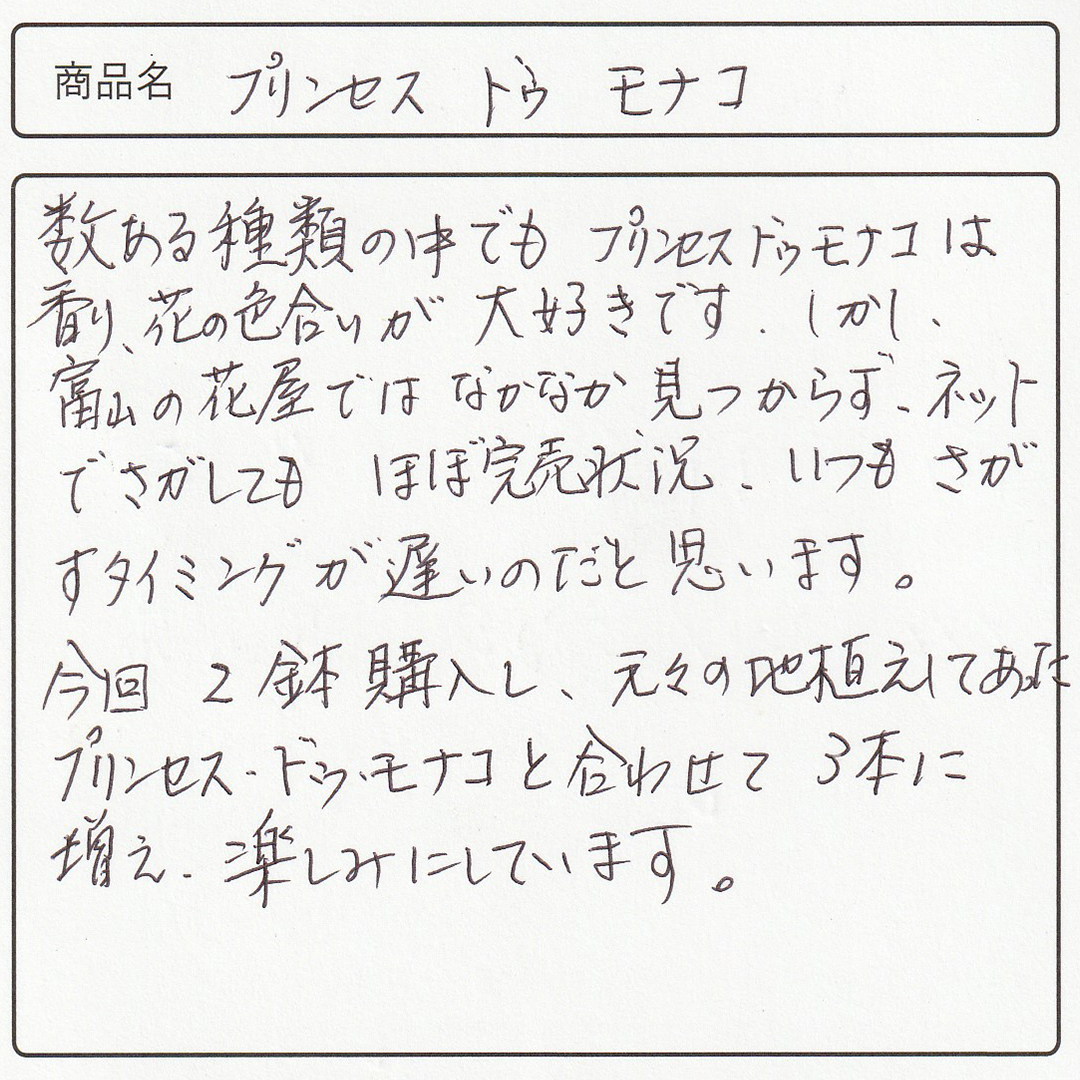 商品名 プリンセス ドゥ モナコ
数ある種類の中でも プリンセスドゥモナコは
香り、花の色合いが 大好きです。しかし、
富山の花屋では なかなか見つからず、ネット
でさがしても ほぼ完売状況、いつも さが
すタイミングが遅いのだと思います。
今回 2鉢購入し、元々の地植えしてあった
プリンセス・ドゥ・モナコと合わせて 3本に
増え、楽しみにしています。